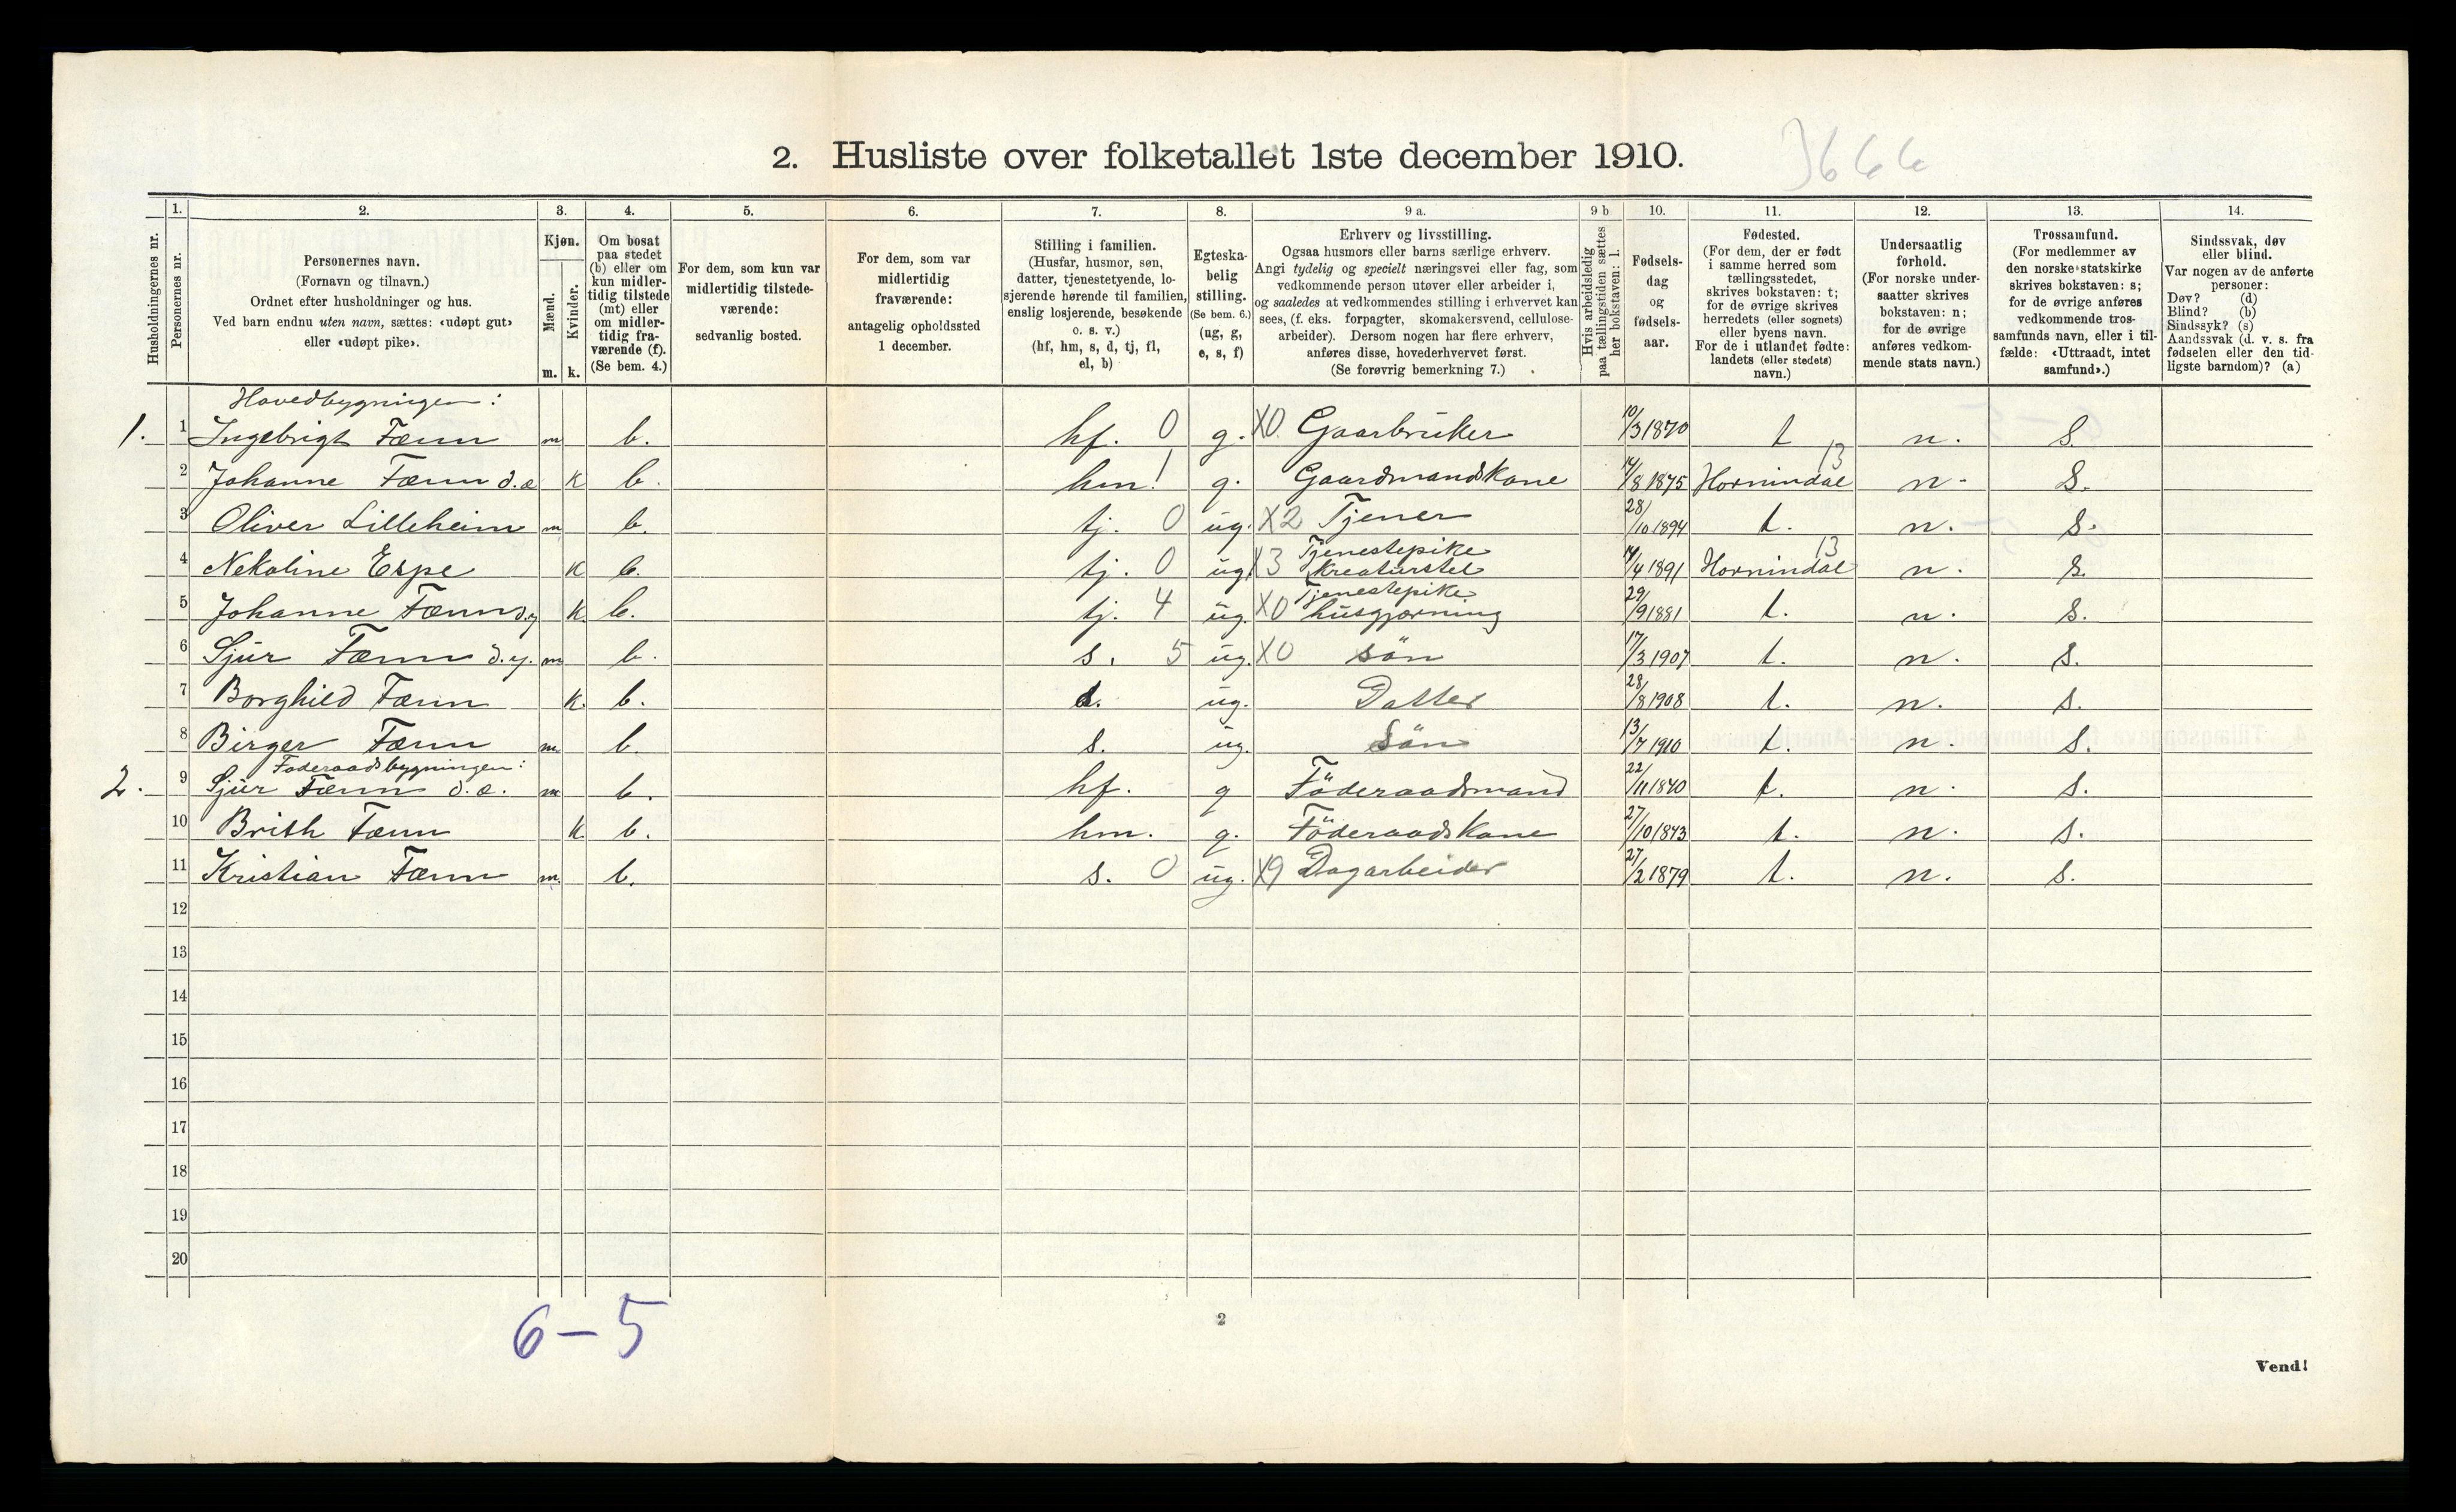 2. Husliste over folketallet 1ste december 1910.
3666
Husholdningernes nr.
1. 2. 3. 4. 5. 6. 7. 8. 9 a. 9 b 10. 11. 12. 13. 14.
Personernes nr.
Personernes navn.
(Fornavn og tilnavn.)
Ordnet efter husholdninger og hus.
Ved barn endnu uten navn, sættes: «udøpt gut»
eller «udøpt pike».
Kjøn.
Mænd.
Kvinder.
m. k.
Om bosat
paa stedet
(b) eller om
kun midler-
tidig tilstede
(mt) eller
om midler-
tidig fra-
værende (f).
(Se bem. 4.)
For dem, som kun var
midlertidig tilstede-
værende:
sedvanlig bosted.
For dem, som var
midlertidig
fraværende:
antagelig opholdssted
1 december.
Stilling i familien.
(Husfar, husmor, søn,
datter, tjenestetyende, lo-
sjerende hørende til familien,
enslig losjerende, besøkende
o. s. v.)
(hf, hm, s, d, tj, fl,
el, b)
Egteska-
belig
stilling.
(Se bem. 6.)
(ug, g,
e, s, f)
Erhverv og livsstilling.
Ogsaa husmors eller barns særlige erhverv.
Angi tydelig og specielt næringsvei eller fag, som
vedkommende person utøver eller arbeider i,
og saaledes at vedkommendes stilling i erhvervet kan
sees, (f. eks. forpagter, skomakersvend, cellulose-
arbeider). Dersom nogen har flere erhverv,
anføres disse, hovederhvervet først.
(Se forøvrig bemerkning 7.)
Hvis arbeidsledig
paa tællingstiden sættes
her bokstaven: l.
Fødsels-
dag
og
fødsels-
aar.
Fødested.
(For dem, der er født
i samme herred som
tællingsstedet,
skrives bokstaven: t;
for de øvrige skrives
herredets (eller sognets)
eller byens navn.
For de i utlandet fødte:
landets (eller stedets)
navn.)
Undersaatlig
forhold.
(For norske under-
saatter skrives
bokstaven: n;
for de øvrige
anføres vedkom-
mende stats navn.)
Trossamfund.
(For medlemmer av
den norske statskirke
skrives bokstaven: s;
for de øvrige anføres
vedkommende tros-
samfunds navn, eller i til-
fælde: «Uttraadt, intet
samfund».)
Sindssvak, døv
eller blind.
Var nogen av de anførte
personer:
Døv? (d)
Blind? (b)
Sindssyk? (s)
Aandssvak (d. v. s. fra
fødselen eller den tid-
ligste barndom)? (a)
Hovedbygningen:
1. 1 Ingebrigt Fænn m b. hf. 0 g. X0. Gaarbruker 10/3 1870 t n. s.
2 Johanne Fænn d.æ k b. hm. 1 g. Gaardmandskone 14/8 1875 Hornindal 13 n. s.
3 Oliver Lilleheim m b. tj. 0 ug. X2 Tjener 28/10 1894 t. n. s.
4 Nekoline Espe k b. tj. 0 ug. X3 Tjenestepike kreaturstel 14/4 1891 Hornindal 13 n. s.
5 Johanne Fænn d.y k. b. tj. 4 ug. X0 Tjenestepike husgjørning 29/9 1881 t. n. s.
6 Sjur Fænn d.y. m b. s. 5 ug. X0 sön 17/3 1907 t. n. s.
7 Borghild Fænn k. b. d. ug. Datter 28/8 1908 t. n. s.
8 Birger Fænn m b. s. ug. Sön 13/7 1910 t. n. s.
Föderaadsbygningen:
2. 9 Sjur Fænn d.æ. m b. hf. g Föderaadsmand 22/11 1840 t. n. s.
10 Brith Fænn k b. hm. g. Föderaadskone 27/10 1843 t. n. s.
11 Kristian Fænn m. b. s. 0 ug. X9 Dagarbeider 27/2 1879 t. n. s.
12
13
14
15
16
17
18
19
20
6-5
2
Vend!